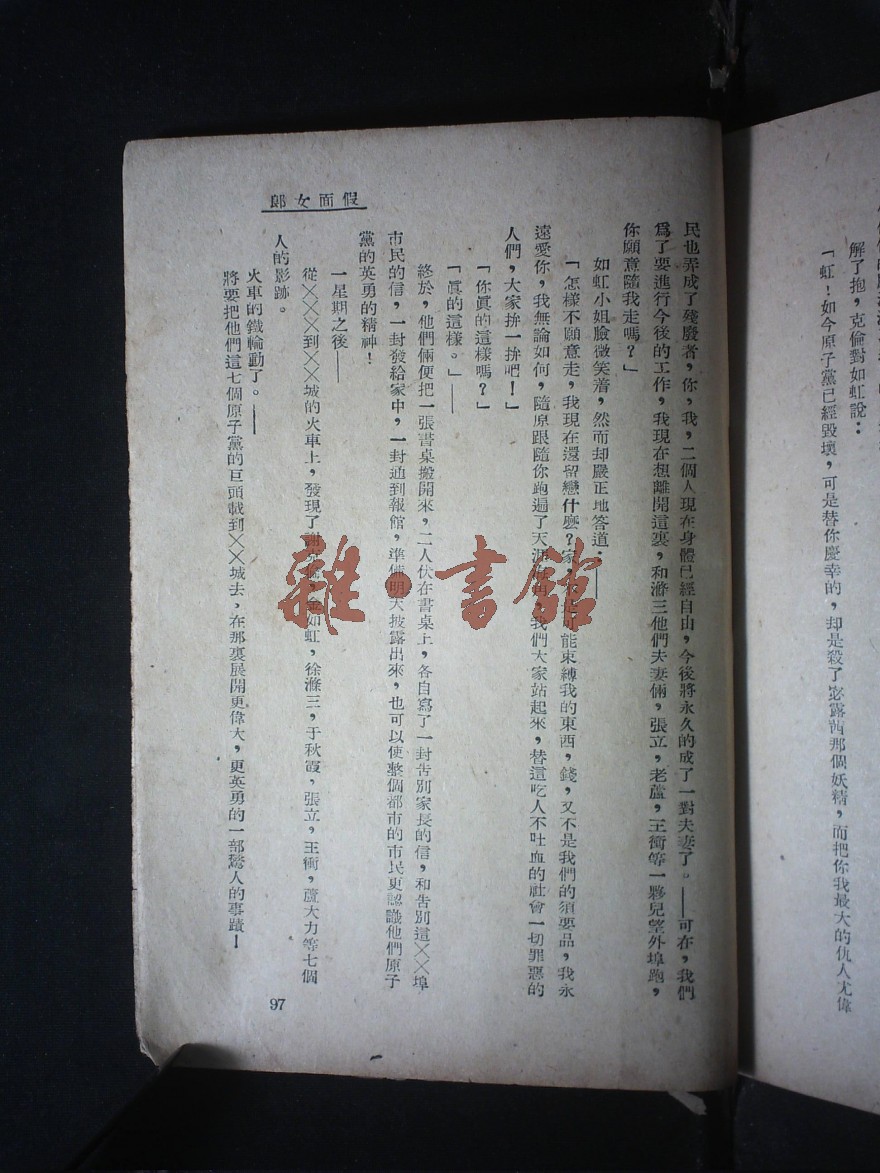 解了抱，克倫對如虹說：
「虹！如今原子黨已經毀壞，可是替你慶幸的，却是殺了宓露西那個妖精，而把你我最大的仇人尤偉
假面女郎
民也弄成了殘廢者，你，我，二個人現在身體已經自由，今後將永久的成了一對夫妻了。——可在，我們
爲了要進行今後的工作，我現在想離開這裏，和滌三他們夫妻倆，張立，老蘆，王衝等一夥兒望外埠跑，
你願意隨我走嗎？」
如虹小姐臉微笑着，然而却嚴正地答道：——
「怎樣不願意走，我現在還留戀什麽？家，不是可能束縛我的東西，錢，又不是我們的須要品，我永
遠愛你，我無論如何，隨原跟隨你跑遍了天涯海角，我們大家站起來，替這吃人不吐血的社會一切罪惡的
人們，大家拚一拚吧！」
「你眞的這樣嗎？」
「眞的這樣。」——
終於，他們倆便把一張書桌搬開來，二人伏在書桌上，各自寫了一封告別家長的信，和告別這××埠
市民的信，一封發給家中，一封通到報館，準備明天披露出來，也可以使整個都市的市民更認識他們原子
黨的英勇的精神！
一星期之後——
從×××到××城的火車上，發現了謝克倫，金如虹，徐滌三，于秋霞，張立，王衝，蘆大力等七個
人的影跡。
火車的鐵輪動了。——
將要把他們這七個原子黨的巨頭載到××城去，在那裏展開更偉大，更英勇的一部驚人的事蹟！
97
雜·書館